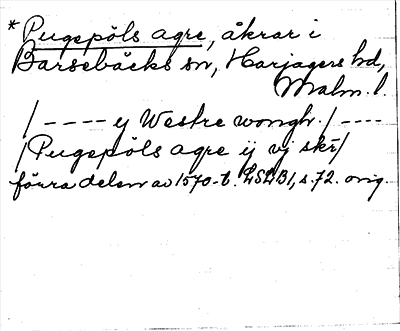 *Pugepöls agre, åkrar i
Barsebäcks sn, Harjagers hd,
Malm. l.
/---- y Westre wongh. / ----
/Pugepöls agre ij vj skr/
förra delen av 1570-t. LSLB1, s. 72. orig.